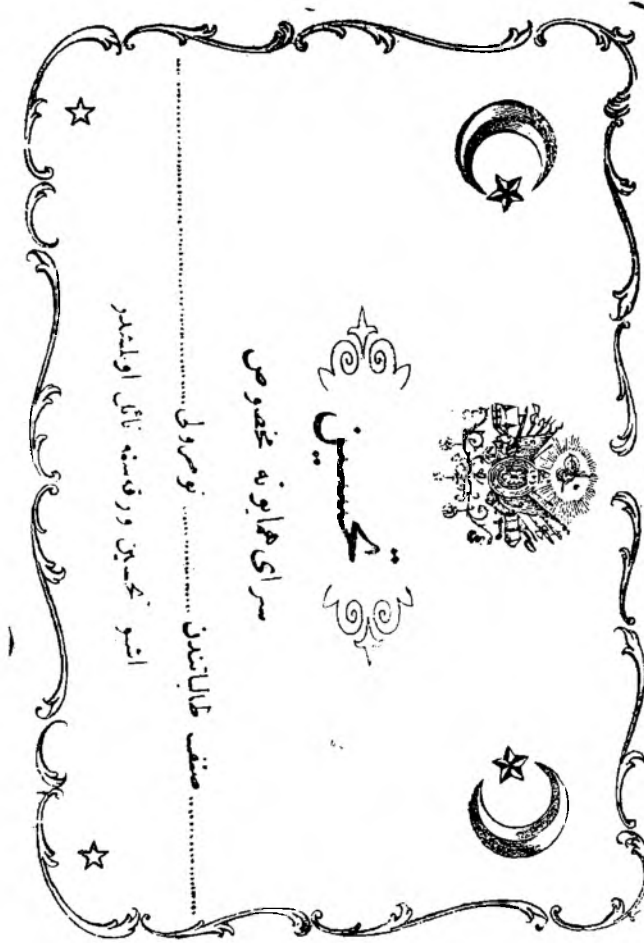 تحسین
سرای همایونه مخصوص
صنف طالباتندن نومرولی
اشبو تحسین ورقه‌سنه نائل اولمشدر